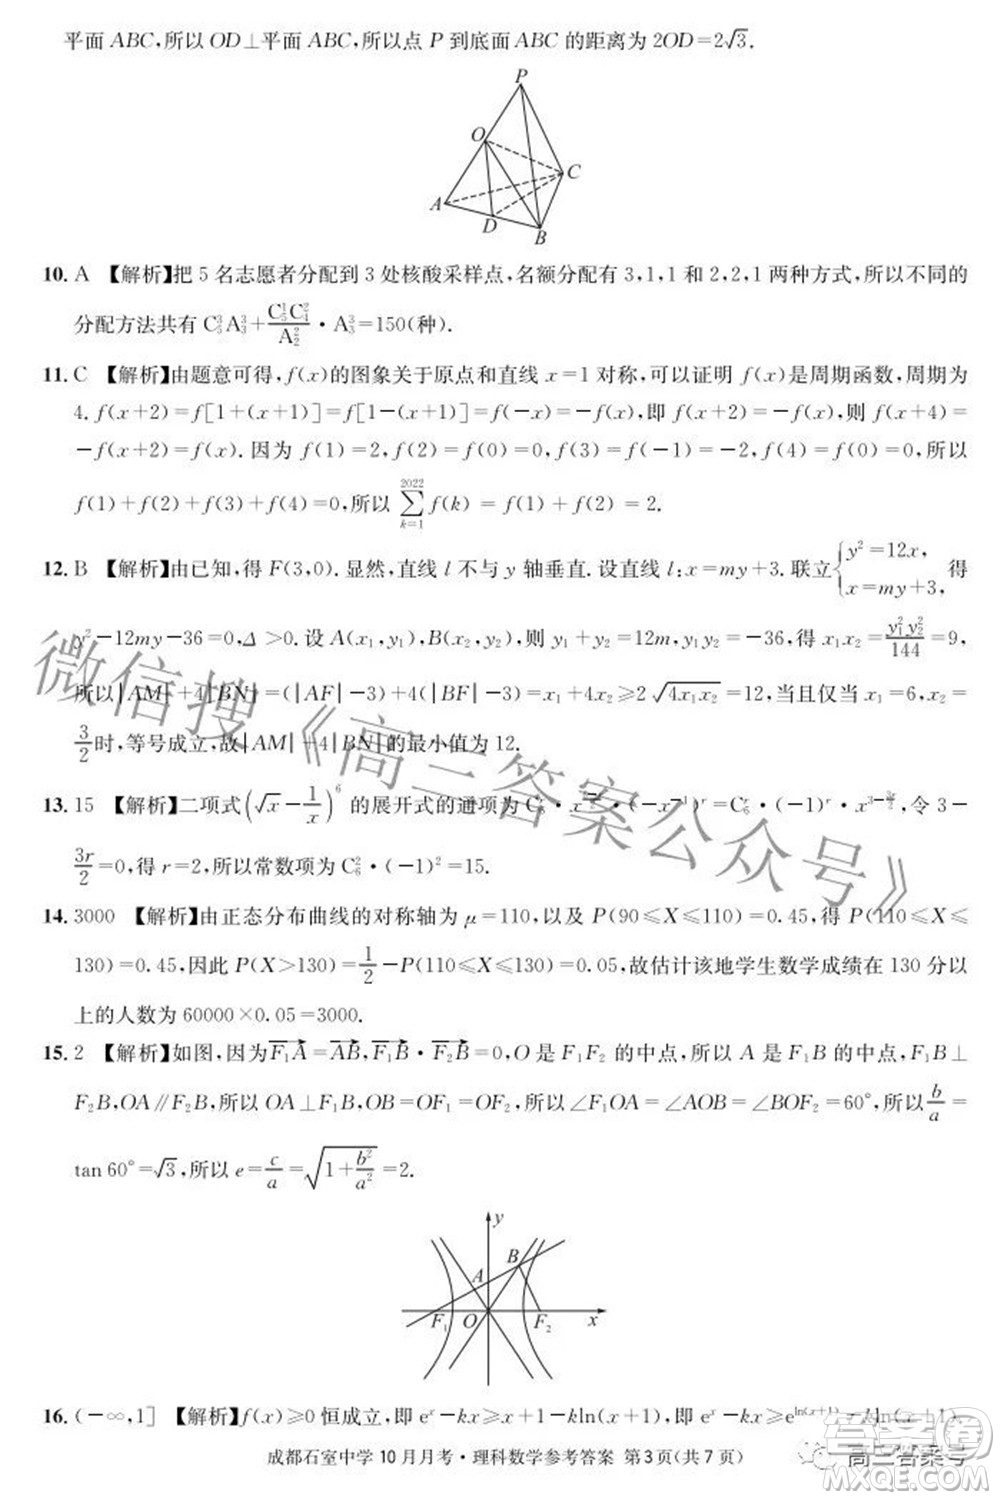 平面 ABC,所以 OD⊥平面 ABC,所以点 P 到底面 ABC 的距离为 2OD=2√3.
P
O
C
A
D
B
10. A 【解析】把 5 名志愿者分配到 3 处核酸采样点,名额分配有 3,1,1 和 2,2,1 两种方式,所以不同的
分配方法共有 C₅³A₃³+(C₅¹C₄²/A₂²)·A₃³=150(种).
11. C 【解析】由题意可得,f(x)的图象关于原点和直线 x=1 对称,可以证明 f(x)是周期函数,周期为
4. f(x+2)=f[1+(x+1)]=f[1-(x+1)]=f(-x)=-f(x),即 f(x+2)=-f(x),则 f(x+4)=
-f(x+2)=f(x). 因为 f(1)=2,f(2)=f(0)=0,f(3)=f(-1)=-2,f(4)=f(0)=0,所以
f(1)+f(2)+f(3)+f(4)=0,所以 ∑(k=1→2022) f(k)=f(1)+f(2)=2.
12. B 【解析】由已知,得 F(3,0). 显然,直线 l 不与 y 轴垂直. 设直线 l:x=my+3. 联立{y²=12x, x=my+3, 得
y²-12my-36=0,Δ>0. 设 A(x₁,y₁),B(x₂,y₂),则 y₁+y₂=12m,y₁y₂=-36,得 x₁x₂=y₁²y₂²/144=9,
所以|AM|+4|BN|=(|AF|-3)+4(|BF|-3)=x₁+4x₂≥2√(4x₁x₂)=12,当且仅当 x₁=6,x₂=
3/2时,等号成立,故|AM|+4|BN|的最小值为 12.
13. 15 【解析】二项式(√x-1/x)⁶的展开式的通项为 C₆ʳ·x^((6-r)/2)·(-x⁻¹)ʳ=C₆ʳ·(-1)ʳ·x^(3-3r/2),令 3-
3r/2=0,得 r=2,所以常数项为 C₆²·(-1)²=15.
14. 3000 【解析】由正态分布曲线的对称轴为 μ=110,以及 P(90≤X≤110)=0.45,得 P(110≤X≤
130)=0.45,因此 P(X>130)=1/2-P(110≤X≤130)=0.05,故估计该地学生数学成绩在 130 分以
上的人数为 60000×0.05=3000.
15. 2 【解析】如图,因为F₁A=AB,F₁B·F₂B=0,O 是 F₁F₂ 的中点,所以 A 是 F₁B 的中点,F₁B⊥
F₂B,OA∥F₂B,所以 OA⊥F₁B,OB=OF₁=OF₂,所以∠F₁OA=∠AOB=∠BOF₂=60°,所以b/a=
tan 60°=√3,所以 e=c/a=√(1+b²/a²)=2.
y
B
A
F₁
O
F₂
x
16. (-∞,1] 【解析】f(x)≥0 恒成立,即 eˣ-kx≥x+1-kln(x+1),即 eˣ-kx≥e^(ln(x+1))-kln(x+1).
成都石室中学 10 月月考·理科数学参考答案 第 3 页(共 7 页)
微信搜《高三答案公众号》
高三答案号
答案圈
MXQE.COM